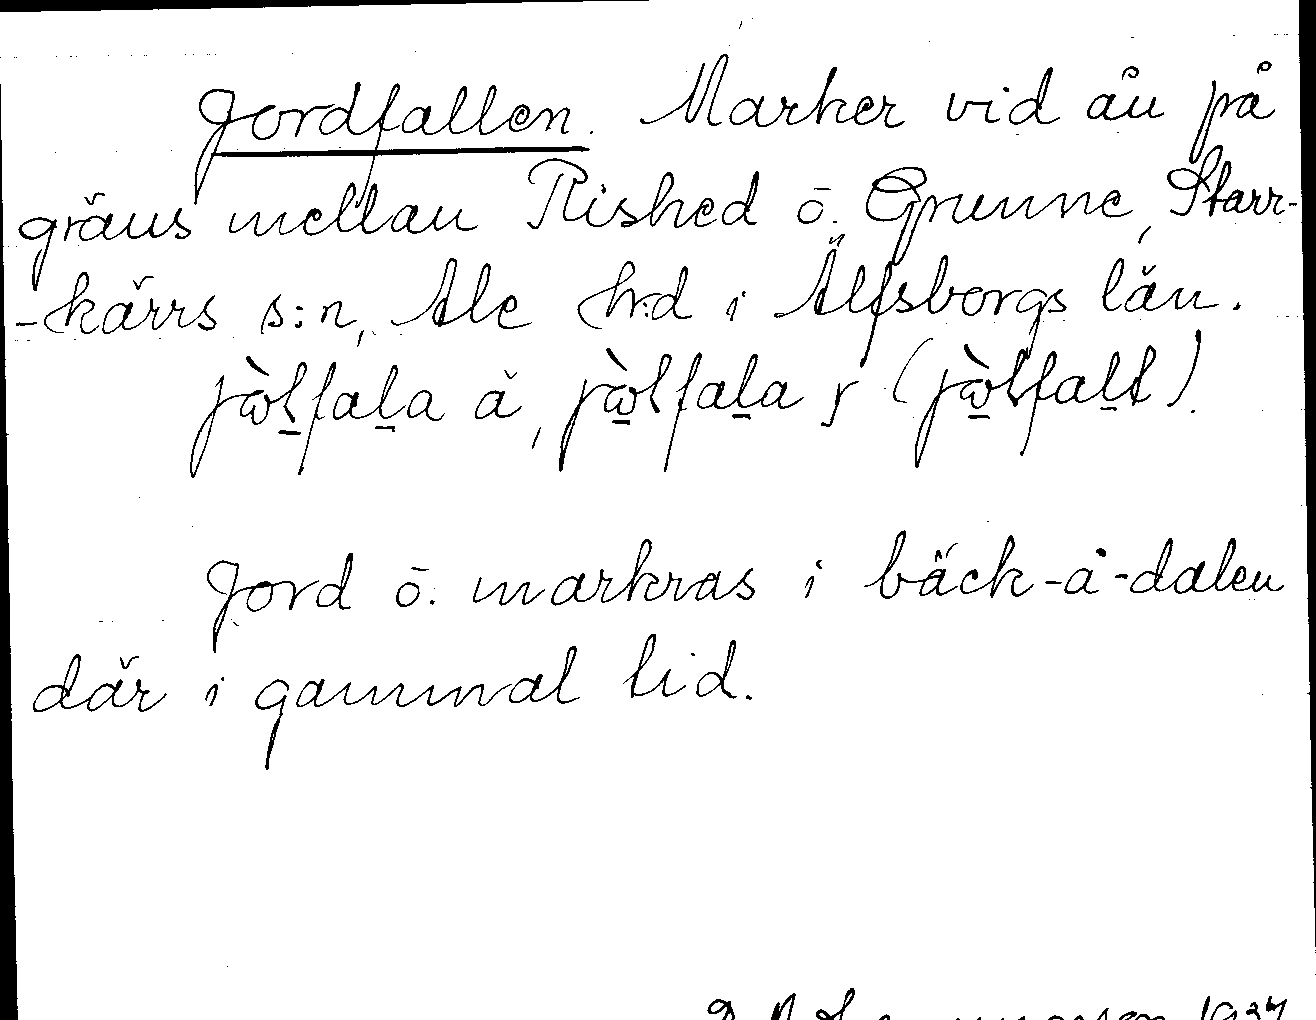 Jordfallen. Marker vid ån på
gräns mellan Rished o. Grunne, Starr-
-kärrs s:n, Ale h:d i Älfsborgs län.
Jord o. markras i bäck-å-dalen
där i gammal tid.
1937